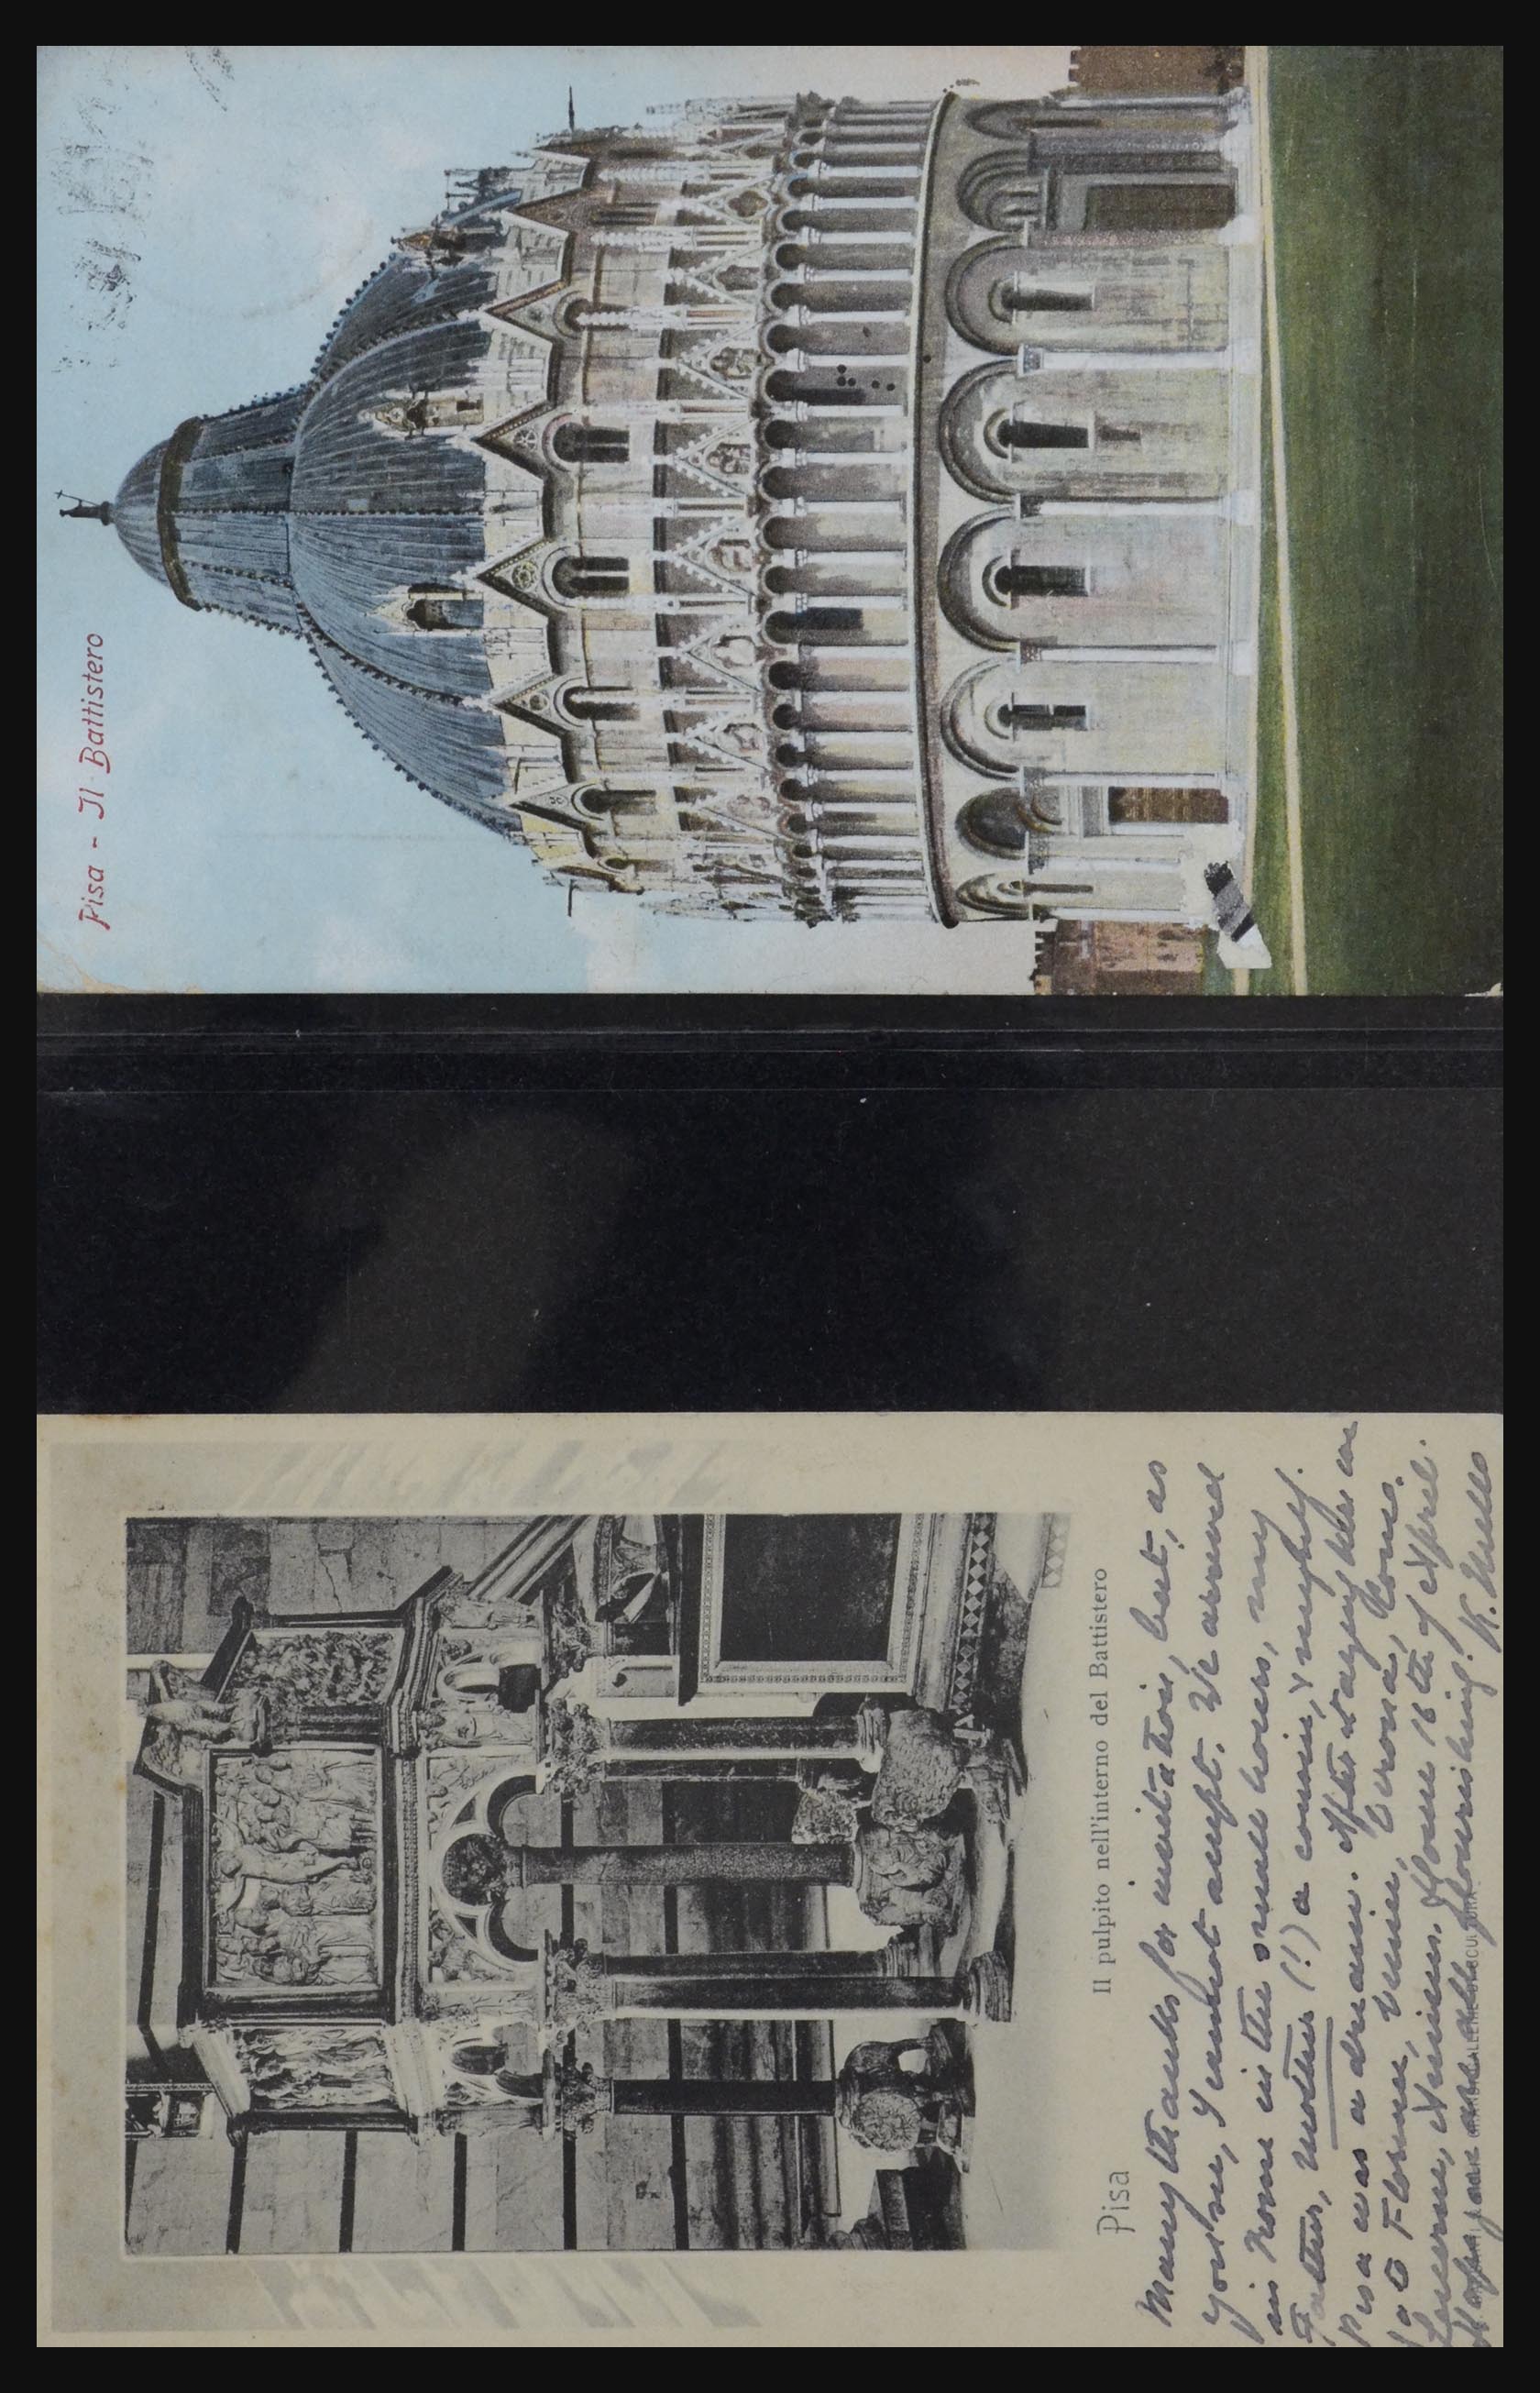 Pisa - Il Battistero
Pisa Il pulpito nell'interno del Battistero
Many thanks for invitation, but, as
you see, I cannot accept. We arrived
in Rome in the small hours, my
Father, Mother (!) a cousin, & myself.
Pisa was a dream. After staying here on
to Florence, Venice, Verona, Como,
Lucerne, Amiens. Home 16th of April.
Hope you are all flourishing! K.